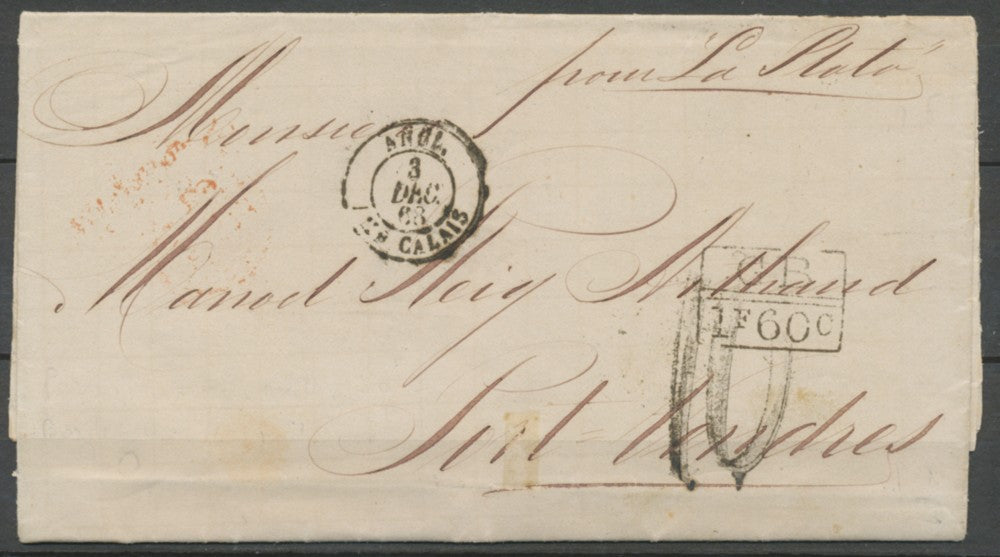 pour "La Plata"
Monsieur
ANGL.
3
DEC.
68
CALAIS
Manuel
G.B
1F60C
10
Port-Vendres